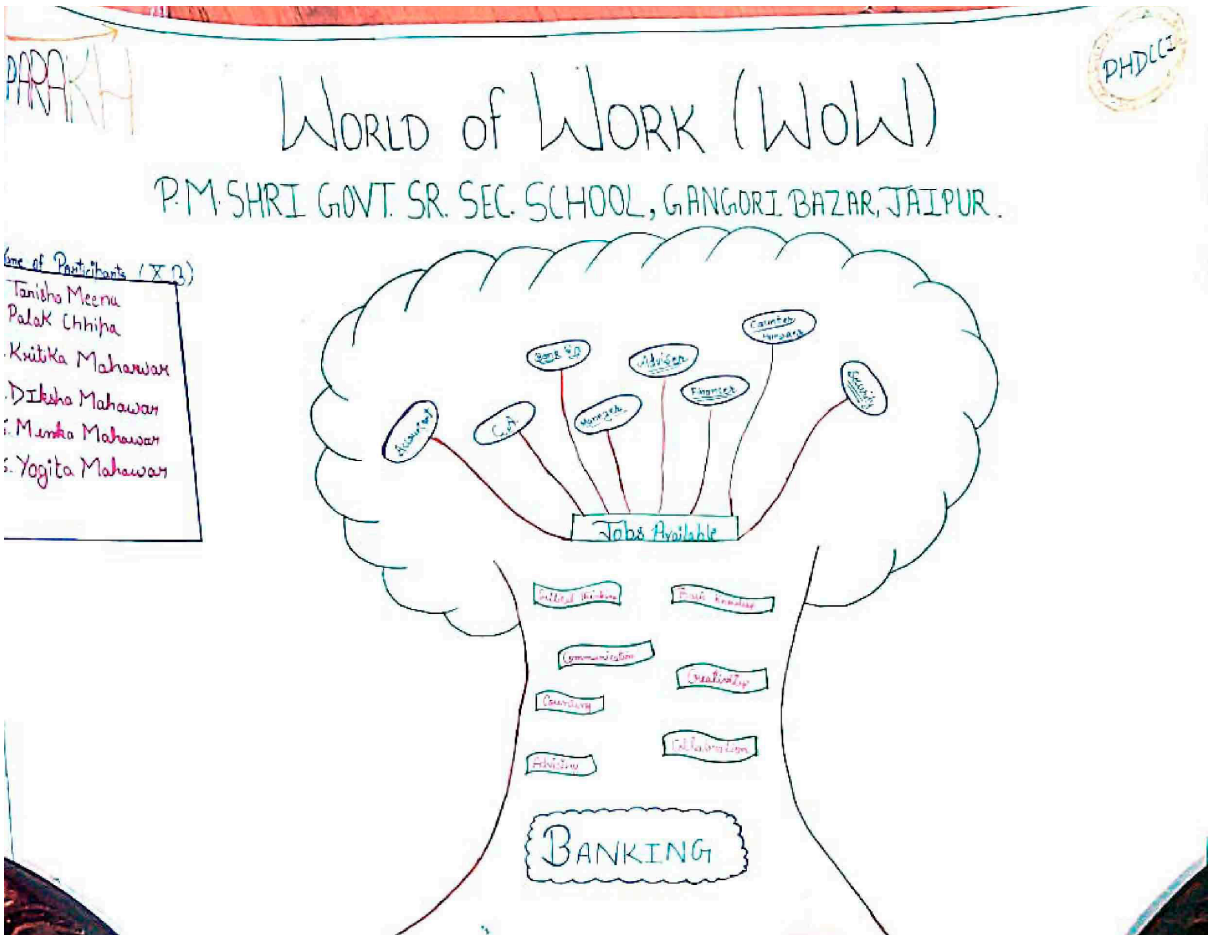 PARAKH
PHDCCI
WORLD of WORK (WoW)
P.M. SHRI GOVT. SR. SEC. SCHOOL, GANGORI BAZAR, JAIPUR.
of Participants (X B)
Tanisha Meena
Palak Chhipa
Kritika Mahawar
Diksha Mahawar
Menka Mahawar
Yogita Mahawar
Accountant
C.A
Bank P.O
Manager
Adviser
Finance
Counter
Security
Jobs Available
Critical thinking
Communication
Creativity
Counting
Collabration
BANKING